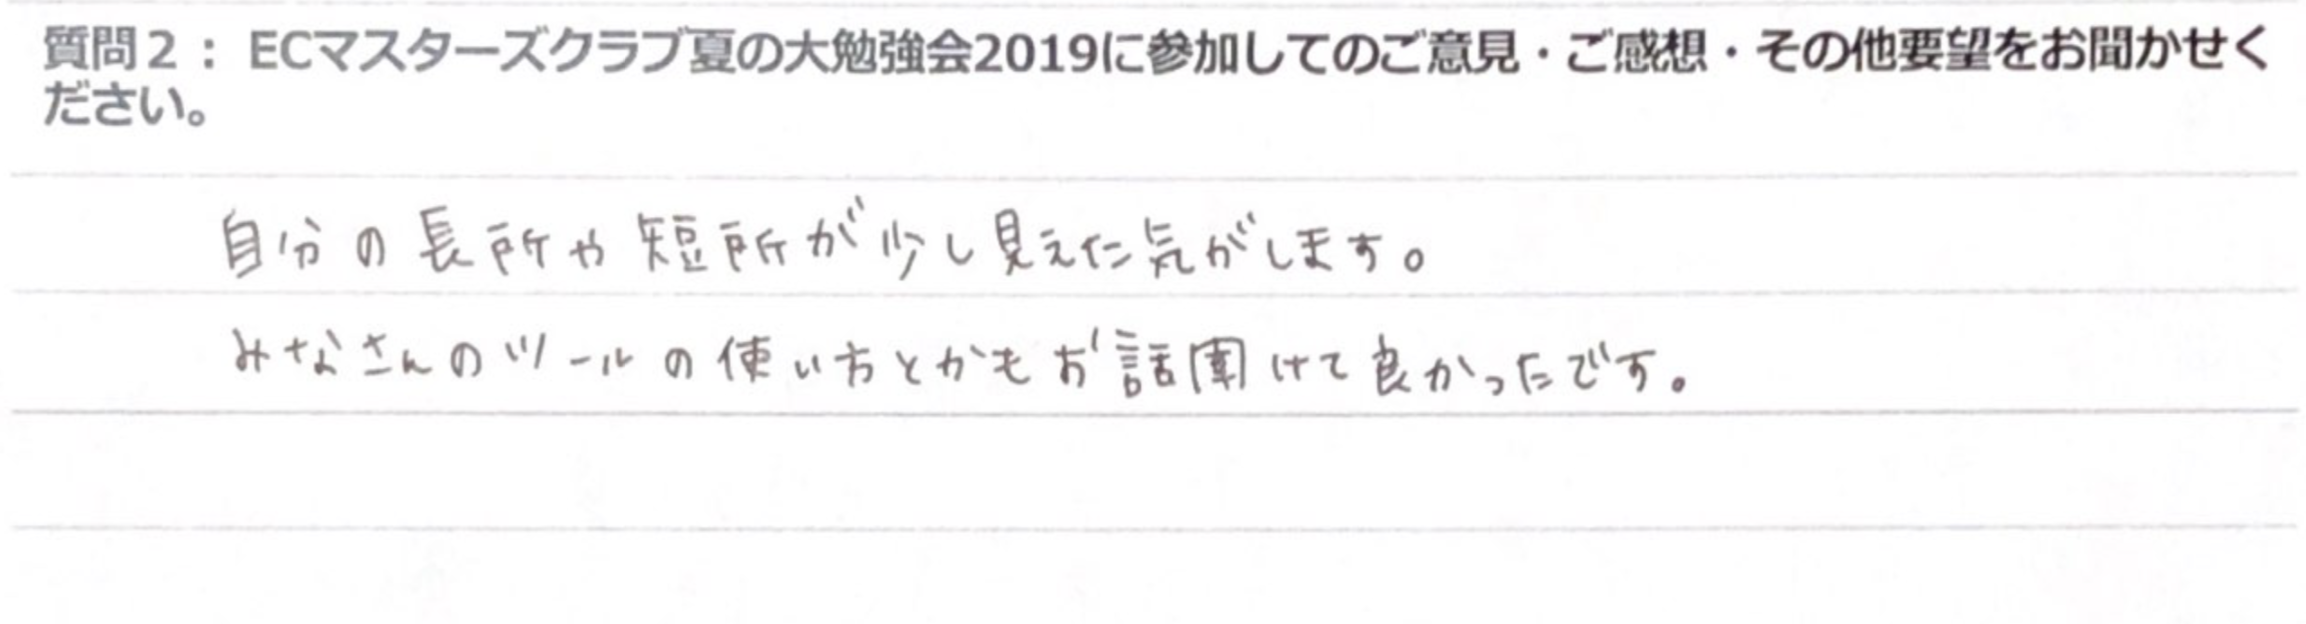 質問２：ECマスターズクラブ夏の大勉強会2019に参加してのご意見・ご感想・その他要望をお聞かせく
ださい。
自分の長所や短所が少し見えた気がします。
みなさんのツールの使い方とかもお話聞けて良かったです。